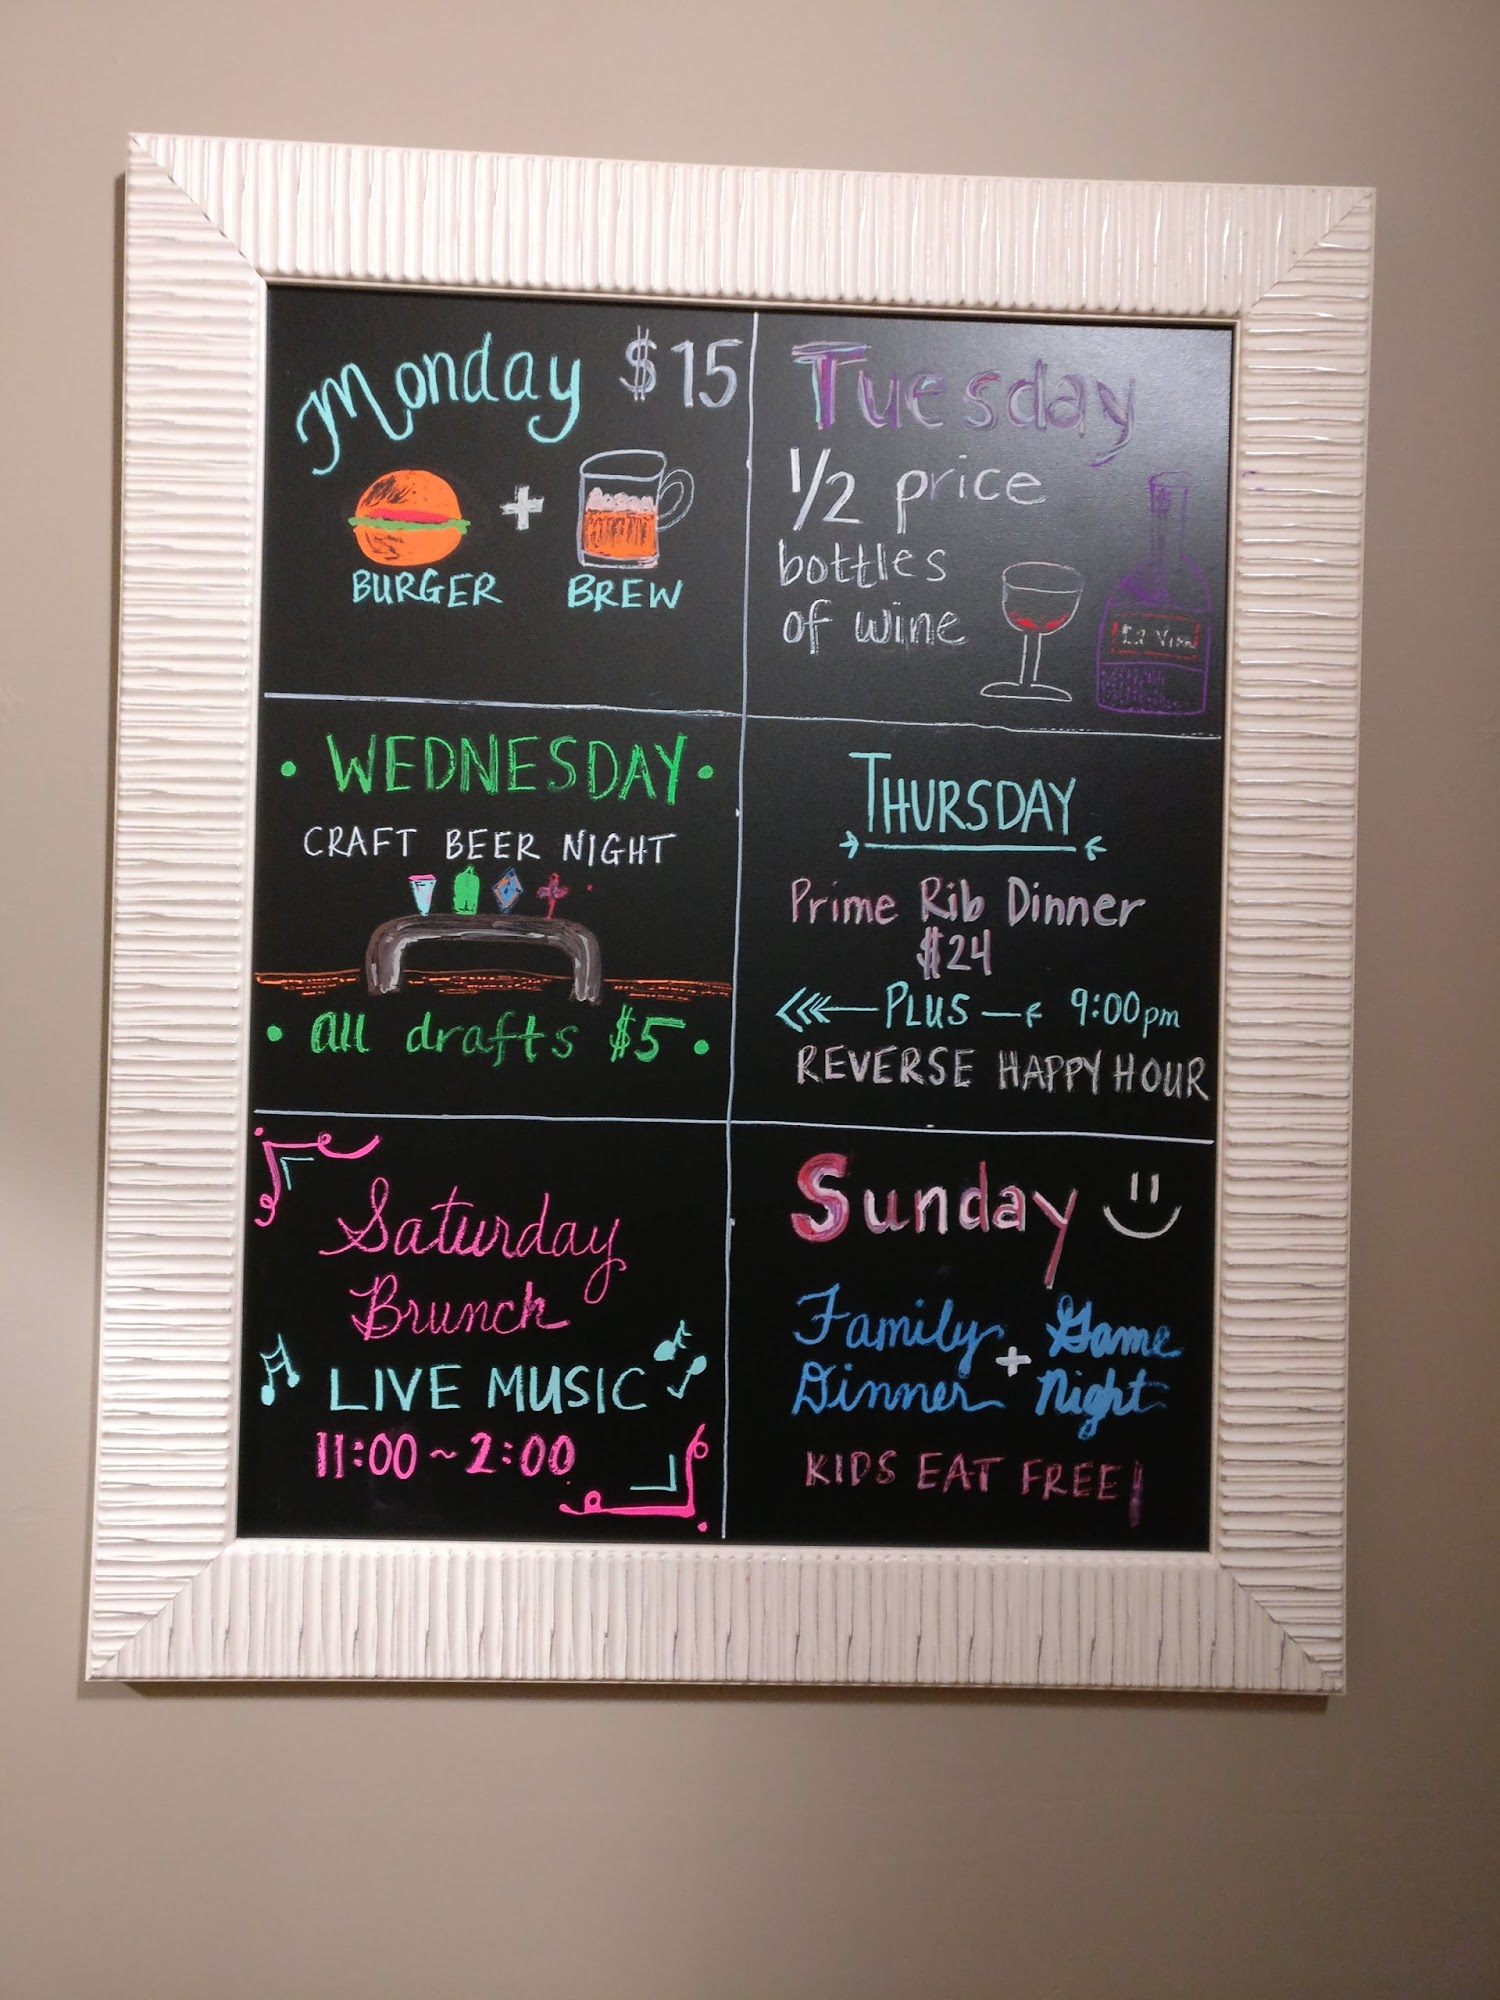 Monday $15
+
BURGER BREW
Tuesday
1/2 price
bottles
of wine
• WEDNESDAY •
CRAFT BEER NIGHT
• all drafts $5 •
THURSDAY
Prime Rib Dinner
$24
PLUS 9:00pm
REVERSE HAPPY HOUR
Saturday
Brunch
LIVE MUSIC
11:00 ~ 2:00
Sunday
Family + Game
Dinner Night
KIDS EAT FREE!